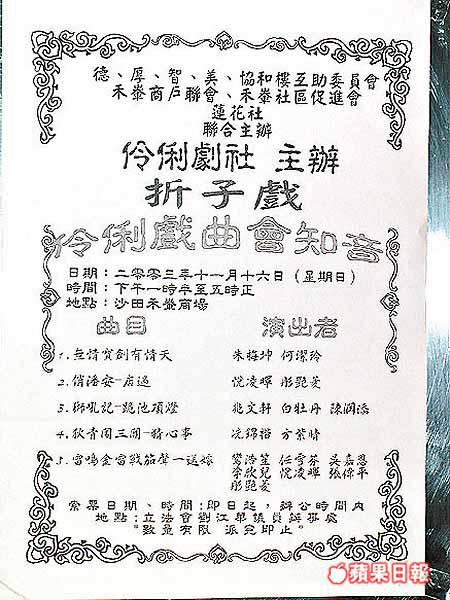 德、厚、智、美、協和樓互助委員會
禾輋商戶聯會、禾輋社區促進會
蓮花社
聯合主辦
伶俐劇社 主辦
折子戲
伶俐戲曲會知音
日期：二零零三年十一月十六日（星期日）
時間：下午一時半至五時正
地點：沙田禾輋商場
曲目 演出者
1.無情寶劍有情天 朱梅坤 何潔玲
2.俏潘安-店遇 倪凌暉 彤艷菱
3.獅吼記-跪池頂燈 兆文軒 白牡丹
4.狄青闖三關-猜心事 冼錦楷 方紫晴
5.雷鳴金鼓戰笳聲-送嫁 任雪芬 吳嘉恩
李欣兒 倪凌暉 張偉平
彤艷菱
索票日期、時間：即日起，辦公時間內
地點：立法會劉江華議員辦事處
"數量有限 派完即止。"
蘋果日報